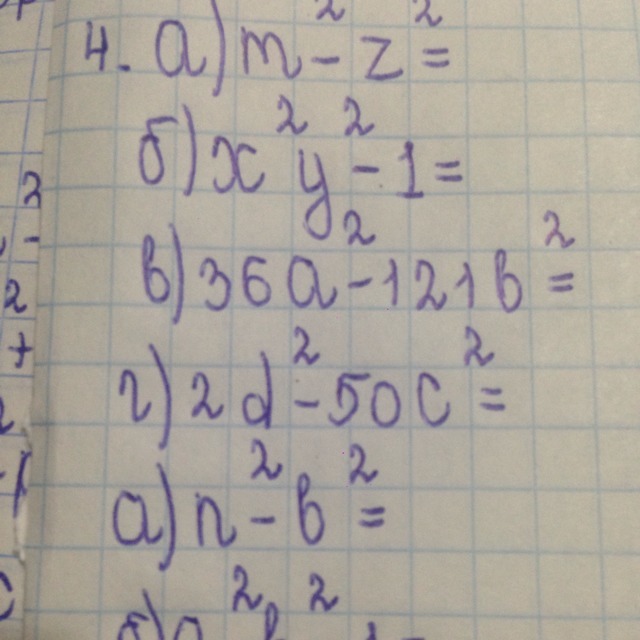 4. а) m² - z² =
б) x²y² - 1 =
в) 36a² - 121b² =
г) 2d² - 50c² =
а) n² - b² =